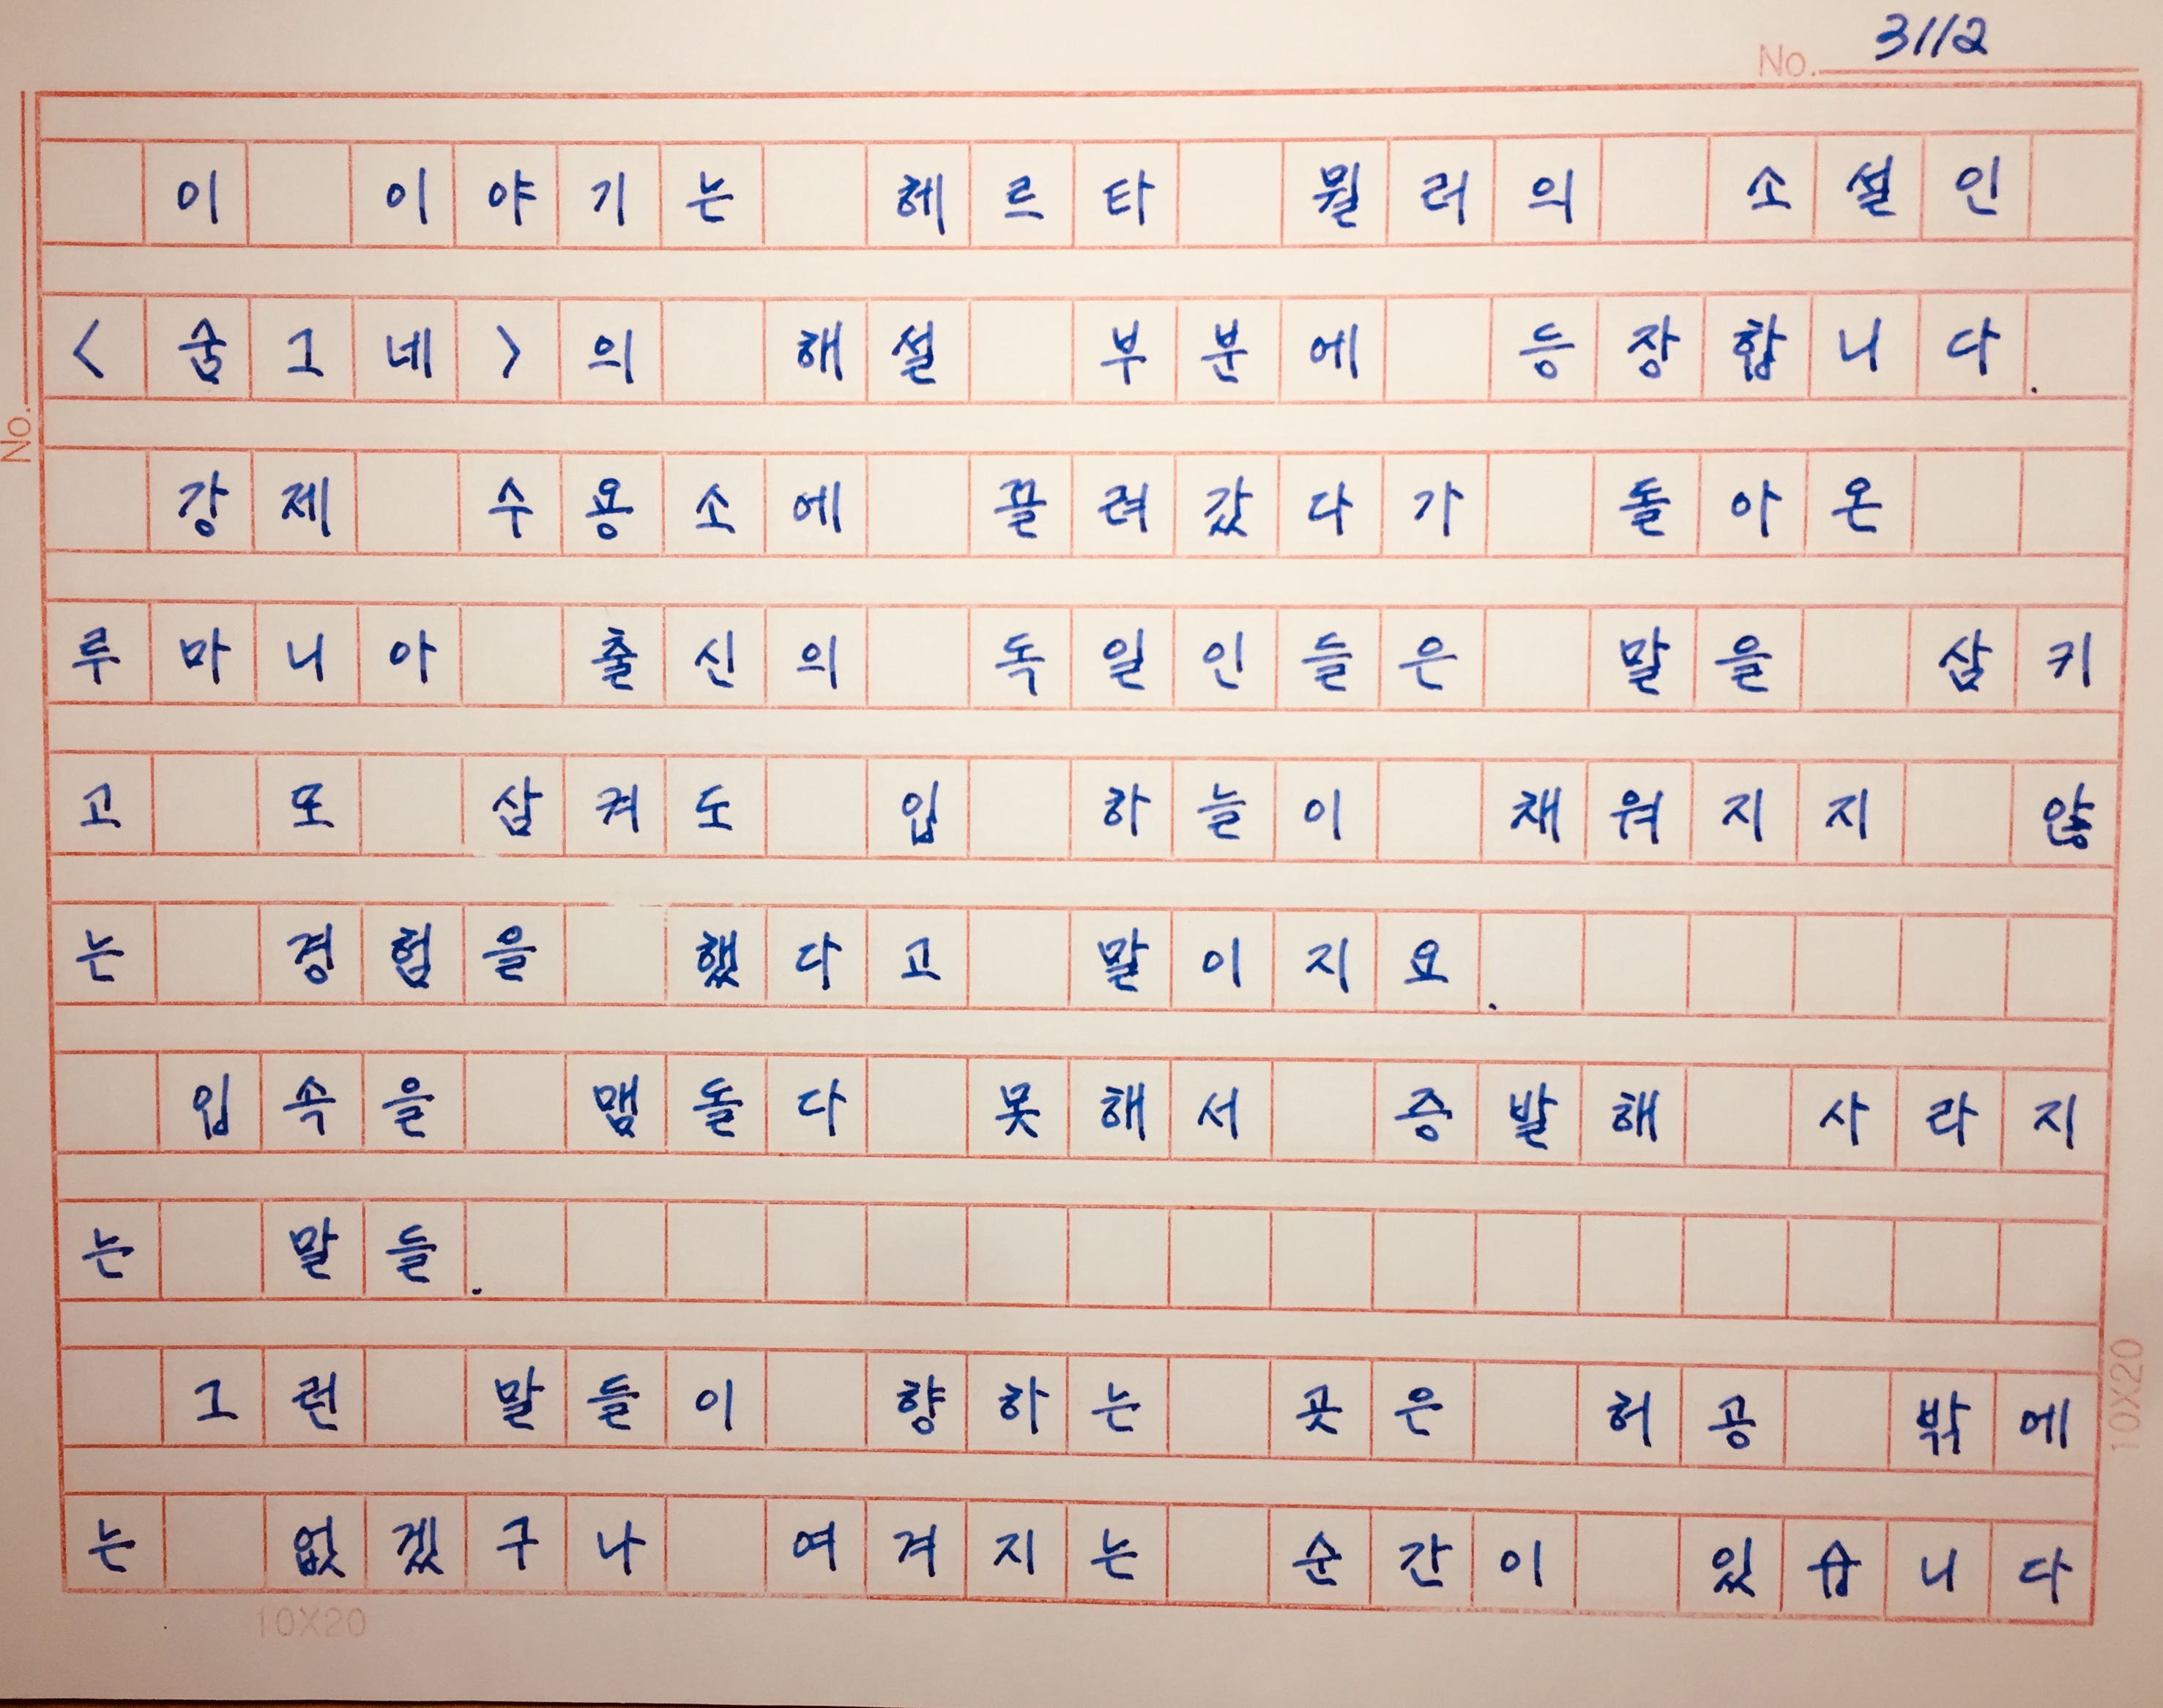 No. 3112
이 이야기는 헤르타 뮐러의 소설인
<숨그네>의 해설 부분에 등장합니다.
강제 수용소에 끌려갔다가 돌아온
루마니아 출신의 독일인들은 말을 삼키
고 또 삼켜도 입 하늘이 채워지지 않
는 경험을 했다고 말이지요.
입속을 맴돌다 못해서 증발해 사라지
는 말들.
그런 말들이 향하는 곳은 허공 밖에
는 없겠구나 여겨지는 순간이 있습니다
No.
10X20
10X20